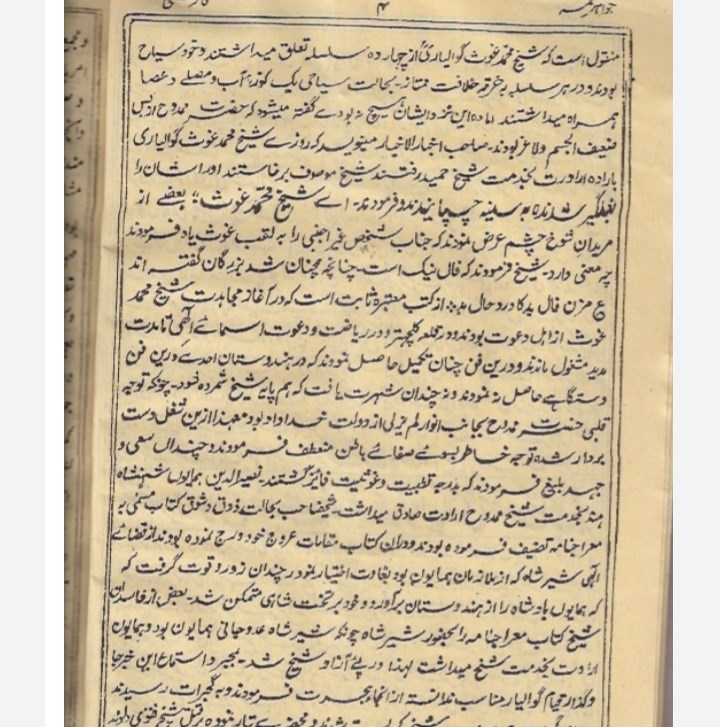 جواہر خمسہ ۴ فارسی
منقول است کہ شیخ محمد غوث گوالیاریؒ از چہاردہ سلسلہ تعلق میداشتند و خود سیاح
بودند و در ہر سلسلہ بہ خرقہ خلافت ممتاز۔ بحالت سیاحی یک کوزۂ آب و مصلے و عصا
ہمراہ میداشتند گفتہ میشود کہ حضرت ممدوح از بس
ضعیف الجسم و لاغر بودند۔ صاحب اخبار الاخیار مینویسد کہ روزے شیخ محمد غوث گوالیاری
بارادہ ارادت بخدمت شیخ حمید رفتند شیخ موصوف برخاستند و ایشان را
بغلگیر شدندہ بہ سینہ چسپانیدند و فرمودند۔ اے شیخ محمد غوث؛؛ بعضے از
مریدان شوخ چشم عرض نمودند کہ جناب شخص غیر اجنبی را بہ لقب غوث یاد فرمودند
چہ معنی دارد۔ شیخ فرمودند کہ فال نیک است۔ چنانچہ ہمچنان شد بزرگان گفتہ اند
ع مزن فال بد کاورد حال بد؛؛ از کتب معتبرہ ثابت است کہ در آغاز مجاہدت شیخ محمد
غوث از اہل دعوت بودند و در قلعہ و در ریاضت و دعوت اسمائے الٰہی تا مدت
مدید مشغول ماندند و درین فن چنان تکمیل حاصل نمودند کہ در ہندوستان احدے درین فن
دستگاہے حاصل نہ نمودند و نہ چندان شہرت یافت کہ ہم پایہ شیخ شمردہ شود۔ چونکہ توجہ
قلبی حضرت ممدوح بجانب انوار لم یزلی از دولت خداداد بود معہذا ازین شغل دست
بردار شدہ توجہ خاطر بسوئے صفائے باطن منعطف فرمودند و چندان سعی و
جہد بلیغ فرمودند کہ بدرجہ قطبیت و غوثیت فائز گشتند۔ نصیر الدین ہمایوں شہنشاہ
ہند بخدمت شیخ ممدوح ارادت صادق میداشت۔ شیخ صاحب بحالت ذوق و شوق کتاب مسمٰی بہ
معراجنامہ تصنیف فرمودہ بودند و دران کتاب مقامات عروج خود درج نمودہ بودند از قضائے
الٰہی شیر شاہ کہ از ملازمان ہمایون بود بغاوت اختیار نمود و چندان زور و قوت گرفت کہ
کہ ہمایوں بادشاہ را از ہندوستان برآورد و خود بر تخت شاہی متمکن شد۔ بعض از حاسدان
شیخ کتاب معراجنامہ را بحضور شیر شاہ چونکہ شیر شاہ عدو جانی ہمایون بود و ہمایون
ارادت بخدمت شیخ میداشت لہذا درپئے آزار شیخ شد۔ بمجرد استماع این خبر
قیام گوالیار مناسب ندانستہ از انجا ہجرت فرمودند و بہ گجرات رسیدند